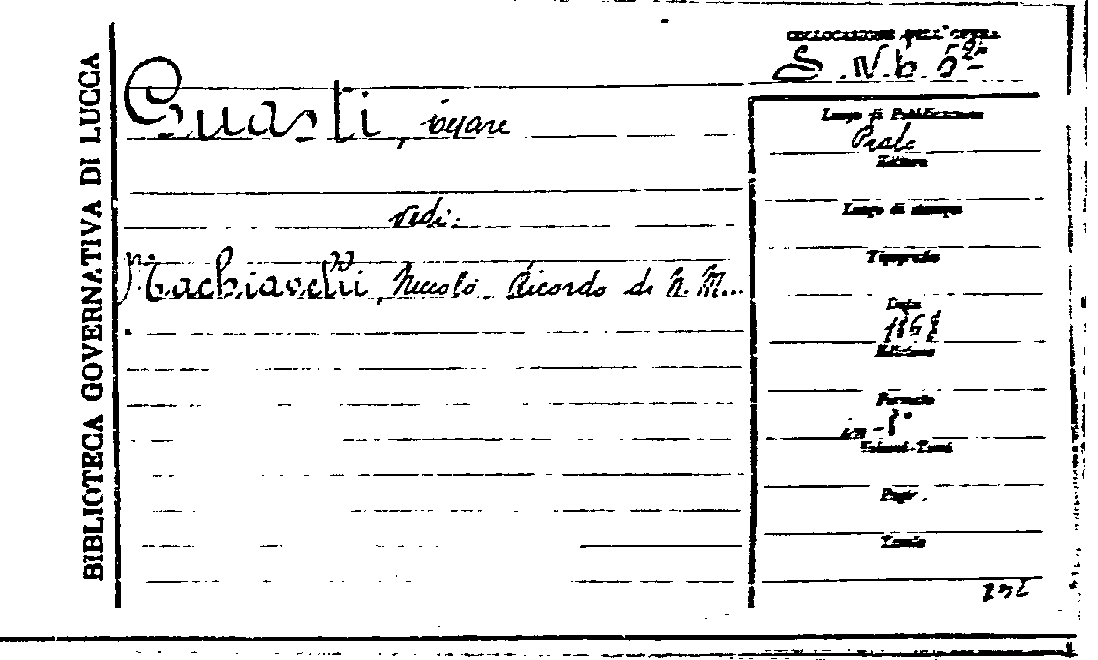 BIBLIOTECA GOVERNATIVA DI LUCCA
COLLOCAZIONE DELL'OPERA
Guasti, Cesare
vedi:
Machiavelli, Niccolò. Ricordo di N. M...
Luogo di Pubblicazione
Prato
Editore
Luogo di stampa
Tipografia
Data
1868
Edizione
Formato
in-8°
Volumi-Tomi
Pagg.
Tavole